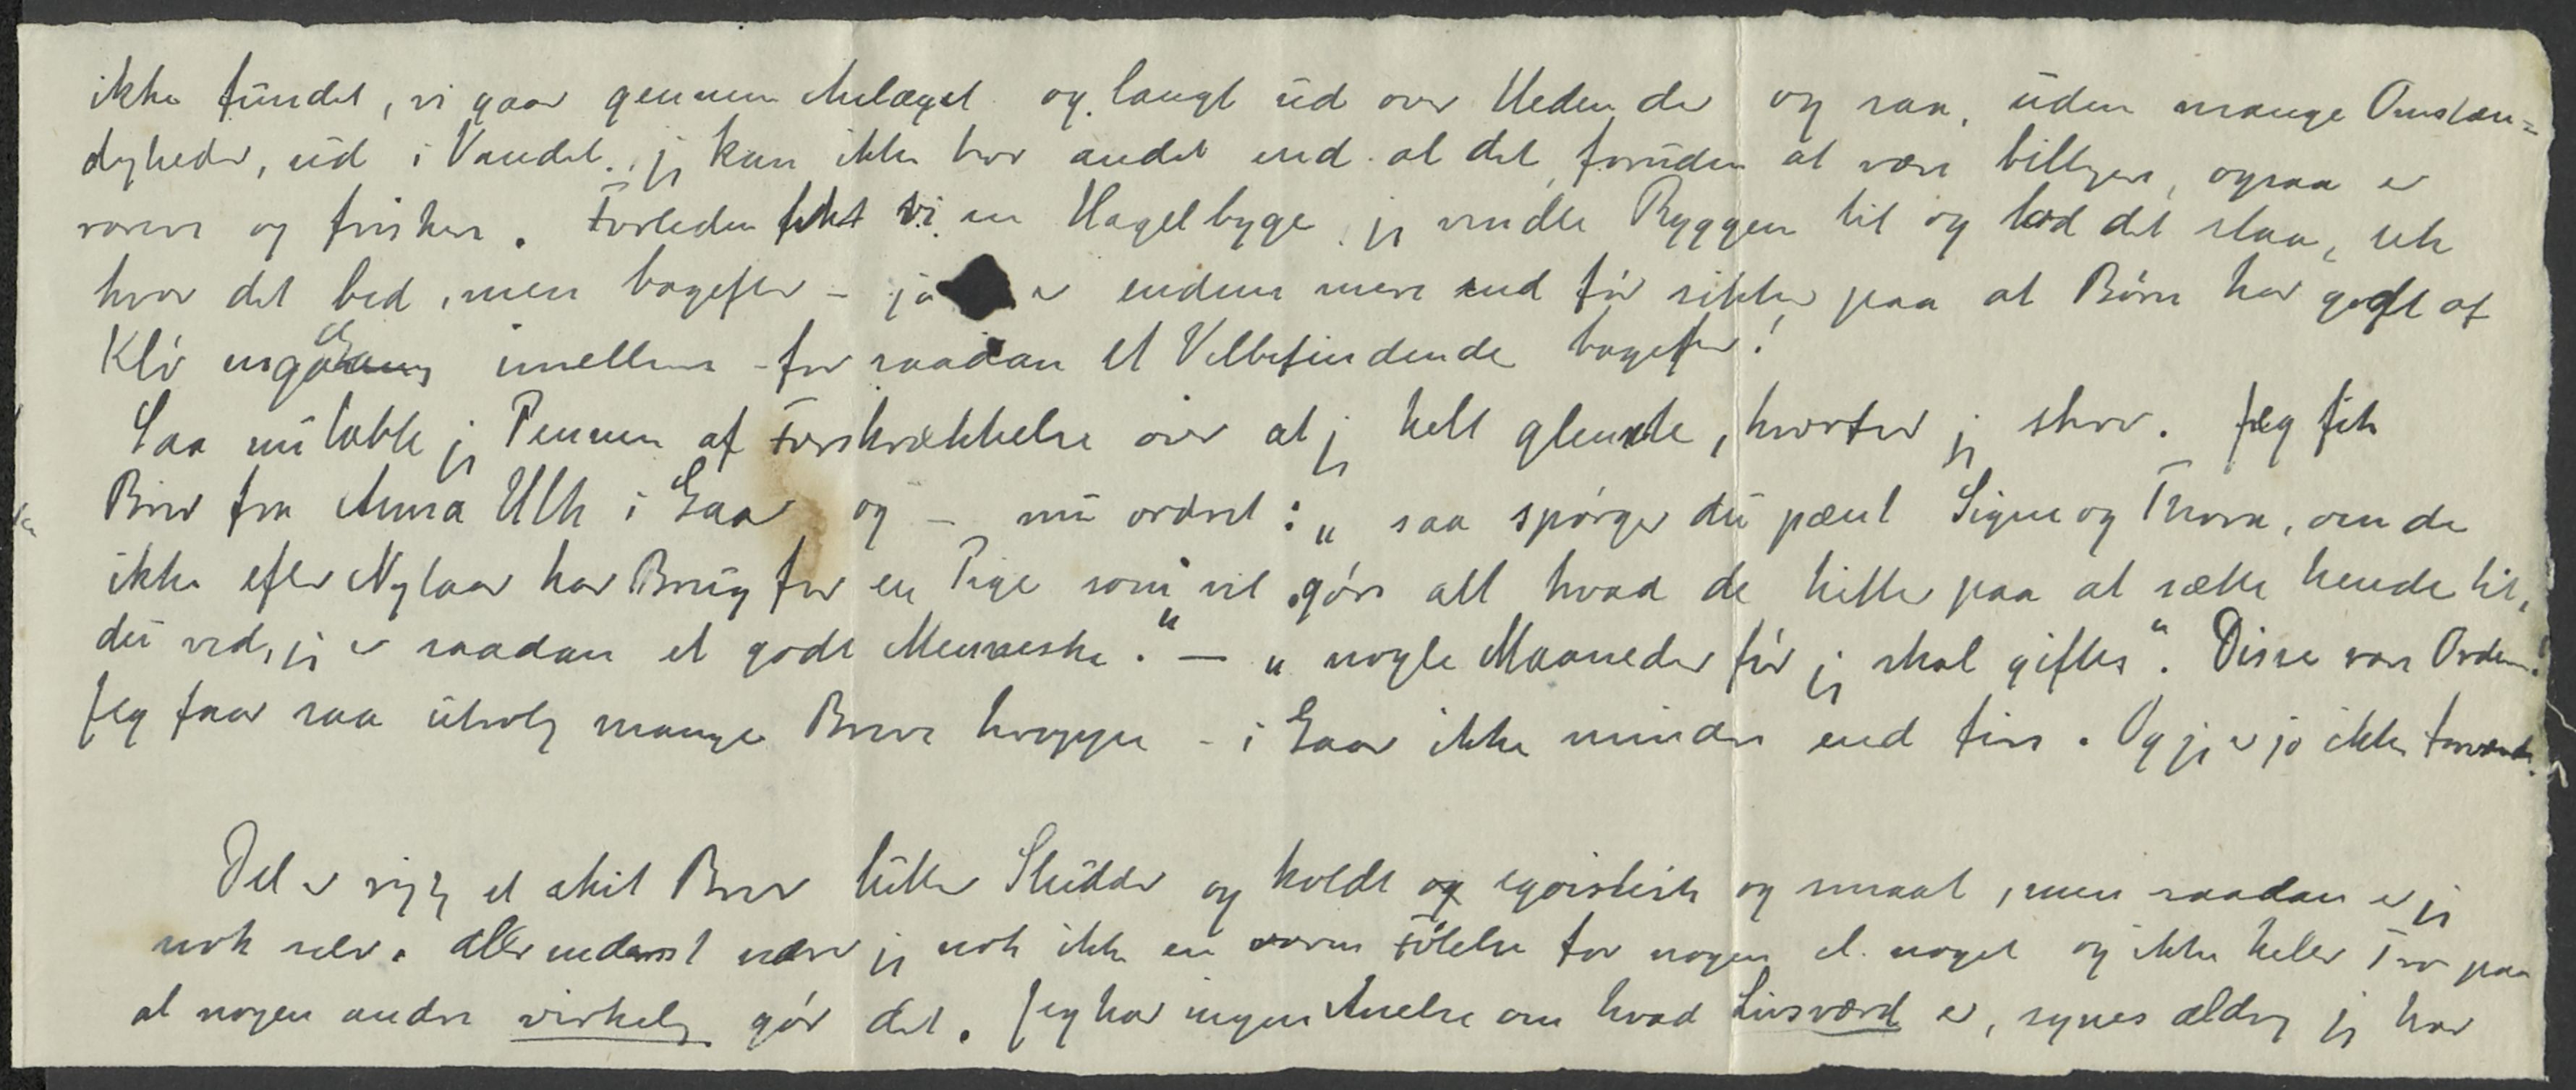 ikke fundet, vi gaar gennem Anlæget og langt ud over Heden der og saa, uden mange Omstæn=
digheder, ud i Vandet. jeg kan ikke tro andet end at det, foruden at være billigere, ogsaa er
rarere og friskere. Forleden fik vi en Hagelbyge, jeg vendte Ryggen til og lod det slaa, uh
hvor det bed, men bagefter - ja er endnu mere end før sikker paa at Børn har godt af
Klø engang imellem - for saadan et Velbefindende bagefter!
Saa nu tabte jeg Pennen af Forskrækkelse over at jeg helt glemte, hvorfor jeg skrev. Jeg fik
Brev fra Anna Uth i Gaar og - nu ordret: „saa spørger du pænt Signe og Thora, om de
ikke efter Nytaar har Brug for en Pige som vil gøre alt hvad de hitter paa at sætte hende til,
du ved, jeg er saadan et godt Menneske." — „nogle Maaneder før jeg skal giftes". Disse vare Ordene!
Jeg faar saa utrolig mange Breve heroppe - i Gaar ikke mindre end fire. Og jeg er jo ikke forvænt.
Det er rigtig et skit Brev lutter Sludder og koldt og egoistisk og smaat, men saadan er jeg
nok selv. Allernederst nærer jeg nok ikke en varm Følelse for nogen el. noget og ikke heller Tro paa
at nogen andre virkelig gør det. Jeg har ingen Anelse om hvad Livsværd er, synes aldrig jeg har